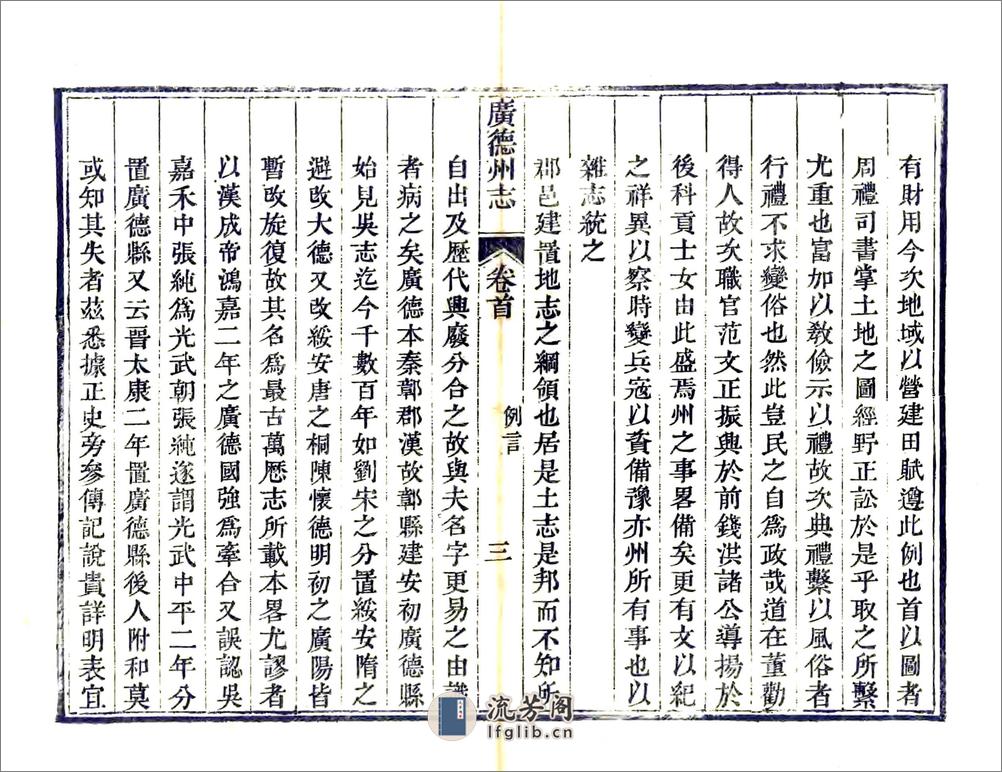 有財用今次地域以營建田賦遵此例也首以圖者
周禮司書掌土地之圖經野正訟於是乎取之所繫
尤重也富加以敎儉示以禮故次典禮繫以風俗者
行禮不求變俗也然此豈民之自爲政哉道在董勸
得人故次職官范文正振興於前錢洪諸公導揚於
後科貢士女由此盛焉州之事畧備矣更有文以紀
之祥異以察時變兵寇以資備豫亦州所有事也以
雜志統之
郡邑建置地志之綱領也居是土志是邦而不知所
廣德州志
卷首
例言
三
自出及歷代興廢分合之故與夫名字更易之由識
者病之矣廣德本秦鄣郡漢故鄣縣建安初廣德縣
始見吳志迄今千數百年如劉宋之分置綏安隋之
避改大德又改綏安唐之桐陳懷德明初之廣陽皆
暫改旋復故其名爲最古萬歷志所載本畧尤謬者
以漢成帝鴻嘉二年之廣德國強爲牽合又誤認吳
嘉禾中張純爲光武朝張純遂謂光武中平二年分
置廣德縣又云晉太康二年置廣德縣後人附和莫
或知其失者茲悉據正史旁參傳記說貴詳明表宜
流芳阁
lfglib.cn